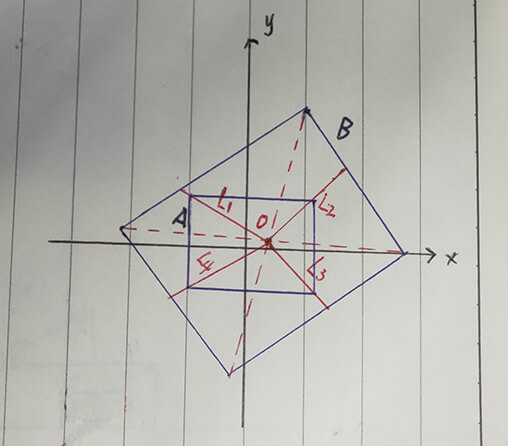 y
B
A
L1
L2
O
L4
L3
x